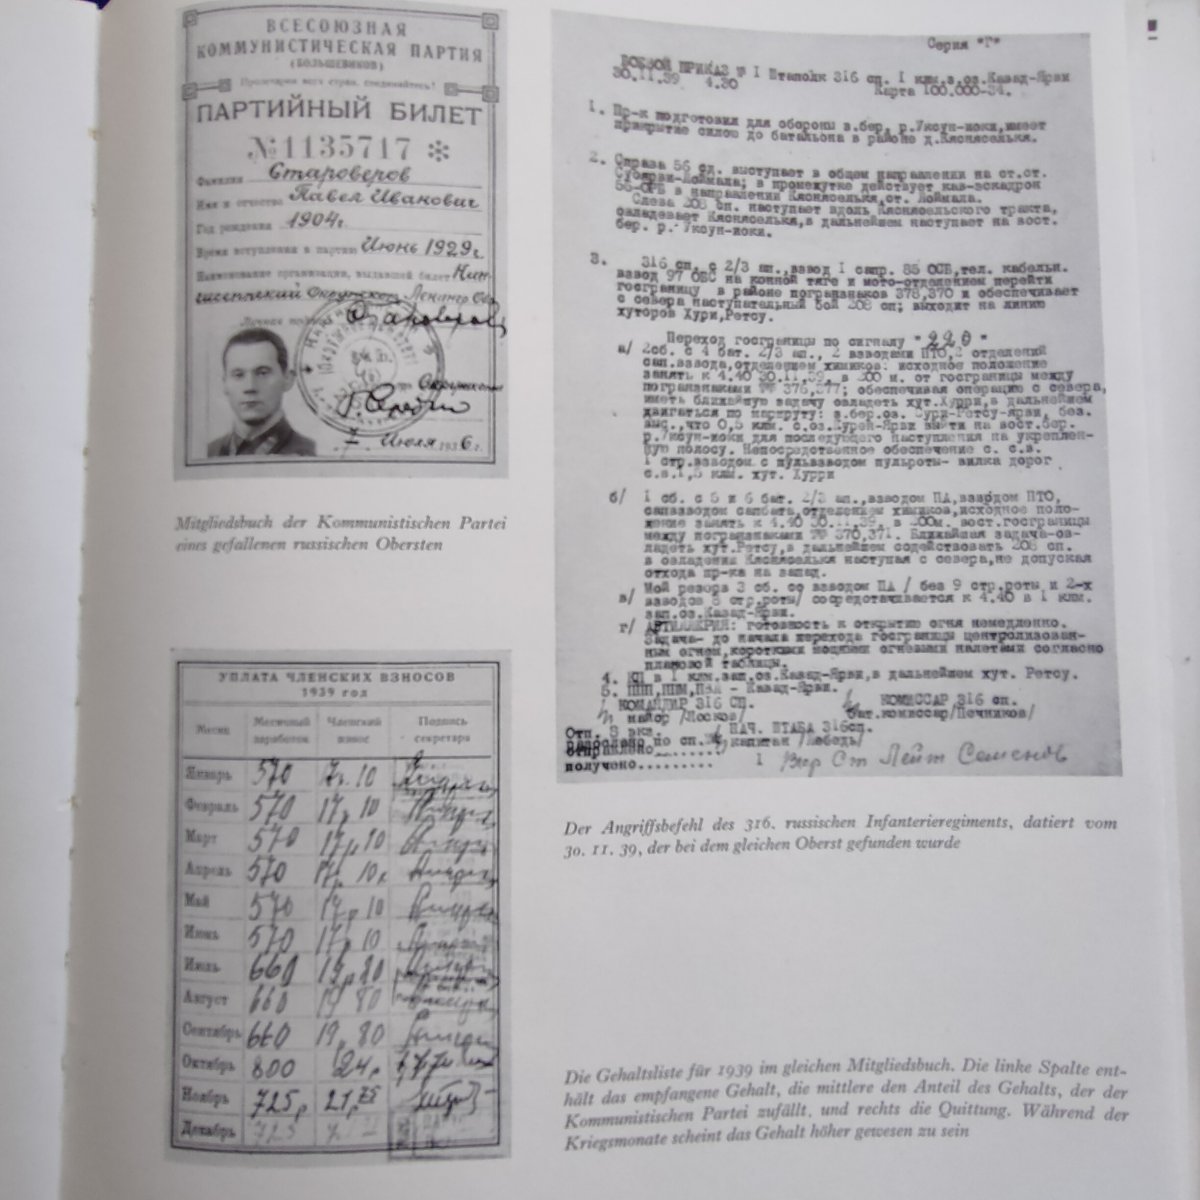 ВСЕСОЮЗНАЯ
КОММУНИСТИЧЕСКАЯ ПАРТИЯ
(БОЛЬШЕВИКОВ)
Пролетарии всех стран, соединяйтесь!
ПАРТИЙНЫЙ БИЛЕТ
№1135717
Фамилия Староверов
Имя и отчество Павел Иванович
Год рождения 1904г.
Время вступления в партию Июнь 1929г.
Наименование организации, выдавшей билет Кин-
гисеппский Окружком Ленингр. Обл
Личная подпись Староверов
7 Июля 1936г.
Mitgliedsbuch der Kommunistischen Partei
eines gefallenen russischen Obersten
УПЛАТА ЧЛЕНСКИХ ВЗНОСОВ
1939 год
Месяц Месячный заработок Членский взнос Подпись секретаря
Январь 570 17р. 10
Февраль 570 17р 10
Март 570 17р 10
Апрель 570 17р. 10к
Май 570 17р 10
Июнь 570 17р 10
Июль 660 19р 80
Август 660 19 80
Сентябрь 660 19р 80
Октябрь 800 24р
Ноябрь 725р 21,75
Декабрь 725
Серия "Г"
БОЕВОЙ ПРИКАЗ № 1 Штеполк 316 сп. 1 клм.з.оз.Кавад-Ярви
30.11.39 4.30 Карта 100.000-34.
1. Пр-к подготовил для обороны в.бер, р.Уксун-иоки,имеет
прикрытие силою до батальона в районе д.Кясняселькя.
2. Справа 56 сд. выступает в общем направлении на ст.ст.
Суоярви-Лоймала; в промежутке действует кав-эскадрон
56-ОРБ в направлении Кясняселькя,ст. Лоймала.
Слева 208 сп. наступает вдоль Кясняселького тракта,
овладевает Кясняселькя,в дальнейшем наступает на вост.
бер. р. Уксун-иоки.
3. 316 сп. с 2/3 ап.,взвод 1 сапр. 85 ОСБ,тел. кабельн.
взвод 97 ОБС на конной тяге и мото-отделением перейти
госграницу в районе погранзнаков 378,370 и обеспечивает
с севера наступательный бой 208 сп; выходит на линию
хуторов Хури,Ретсу.
Переход госграницы по сигналу "220"
а/ 2сб. с 4 бат. 2/3 ап., 2 взводами ПТО,2 отделений
сап.взвода,отделением химиков: исходное положение
занять к 4.40 30.11.39, в 200 м. от госграницы между
погранзнаками №№ 376,377; обеспечивая операцию с севера,
иметь ближайшую задачу овладеть хут.Хурри,в дальнейшем
двигаться по маршруту: в.бер.оз. Хури-Ретсу-ярви, без.
выс.,что 0,5 клм. с.оз.Хурен-Ярви выйти на вост.бер.
р.Уксун-иоки для последующего наступления на укреплен-
ную полосу. Непосредственное обеспечение с. с.в.
1 стр.взводом с пульвзводом пульроты- вилка дорог
с.в.1,5 клм. хут. Хурри
б/ 1 сб. с 5 и 6 бат. 2/3 ап.,взводом ПА,взводом ПТО,
сапвзводом сапбата,отделением химиков,исходное поло-
жение занять к 4.40 30.11.39, в 200м. вост.госграницы
между погранзнаками №№ 370,371. Ближайшая задача-ов-
ладеть хут.Ретсу,в дальнейшем содействовать 208 сп.
в овладении Кясняселькя наступая с севера,не допуская
отхода пр-ка на запад.
в/ Мой резерв 3 сб. со взводом ПА / без 9 стр.роты и 2-х
взводов 8 стр.роты/ сосредотачивается к 4.40 в 1 клм.
зап.оз.Кавад-Ярви.
г/ АРТИЛЛЕРИЯ: готовность к открытию огня немедленно.
Задача- до начала перехода госграницы централизован-
ным огнем,короткими мощными огневыми налетами согласно
плановой таблицы.
4. КП в 1 клм.зап.оз.Кавад-Ярви,в дальнейшем хут. Ретсу.
5. ППП,ППМ,ПЗА - Кавад-Ярви.
КОМАНДИР 316 СП. КОМИССАР 316 сп.
майор /Посков/ бат.комиссар/Печников/
НАЧ. ШТАБА 316сп.
капитан /Лебедь/
Отп. 3 экз.
отправлено.......
получено.........
Ст Лейт Семенов
Der Angriffsbefehl des 316. russischen Infanterieregiments, datiert vom
30. 11. 39, der bei dem gleichen Oberst gefunden wurde
Die Gehaltsliste für 1939 im gleichen Mitgliedsbuch. Die linke Spalte ent-
hält das empfangene Gehalt, die mittlere den Anteil des Gehalts, der der
Kommunistischen Partei zufällt, und rechts die Quittung. Während der
Kriegsmonate scheint das Gehalt höher gewesen zu sein